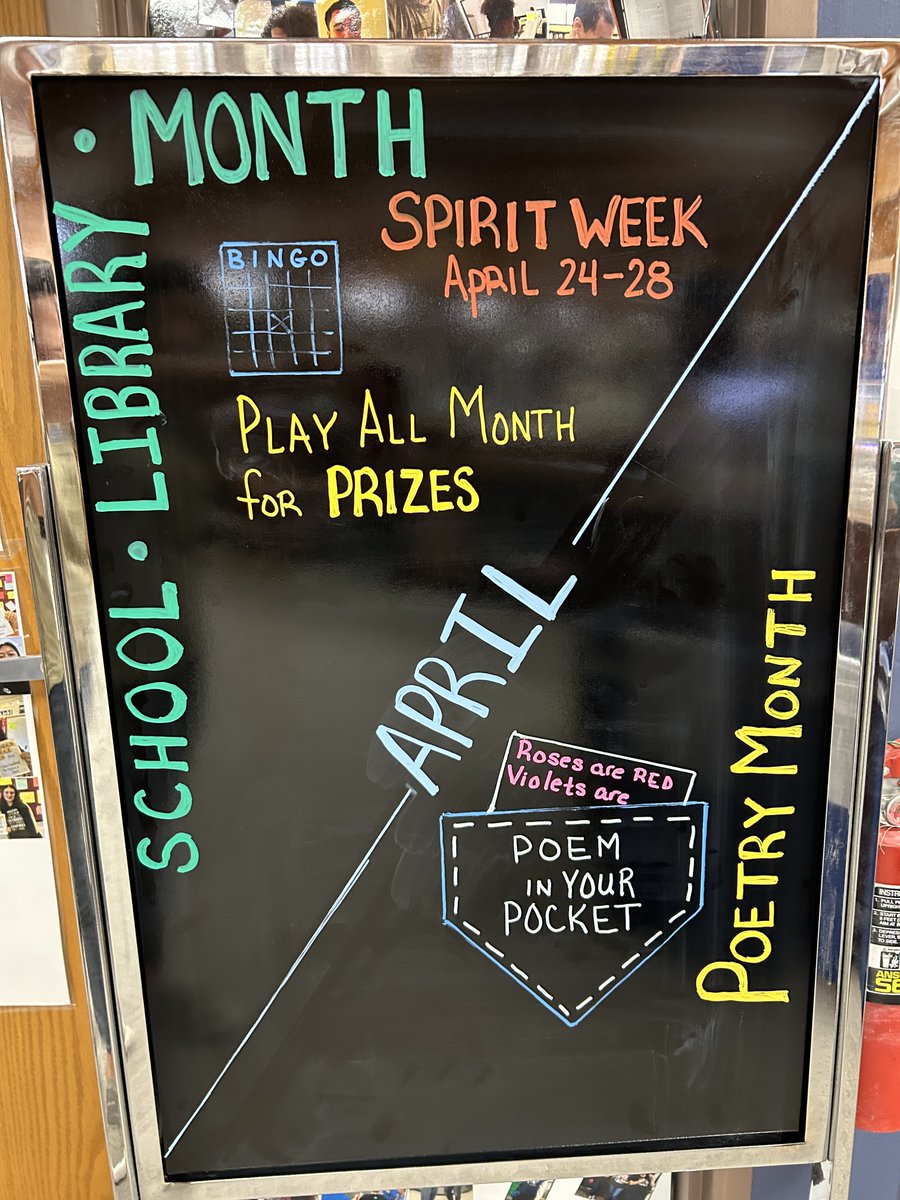 SCHOOL · LIBRARY · MONTH
SPIRIT WEEK
APRIL 24-28
BINGO
PLAY ALL MONTH
for PRIZES
APRIL
Roses are RED
Violets are
POEM
IN YOUR
POCKET
POETRY MONTH